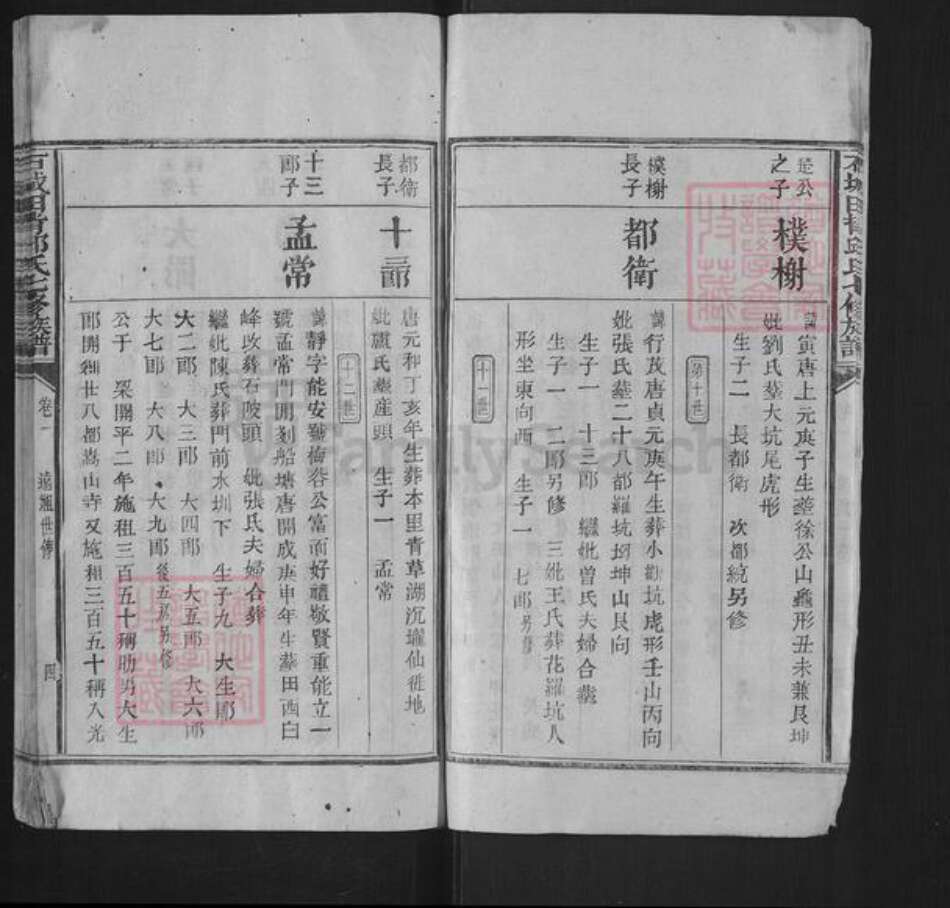 是公
之子
樸榭
諱寅唐上元庚子生塟徐公山龜形丑未兼艮坤
妣劉氏塟大坑尾虎形
生子二 長都衛 次都統另修
第十世
樸榭
長子
都衛
諱行茂唐貞元庚午生葬小勸坑虎形壬山丙向
妣張氏塟二十八都羅坑坳坤山艮向
生子一 十三郎 繼妣曾氏夫婦合塟
生子一 二郎另修 三妣王氏葬花羅坑人
形坐東向西 生子一 七郎另修
十一世
都衛
長子
十三郎
唐元和丁亥年生葬本里青草湖沉壠仙徙地
妣盧氏塟産頭 生子一 孟常
十二世
十三
郎子
孟常
諱靜字能安號梅谷公富而好禮敬賢重能立一
號孟常門開剗船塘唐開成庚申年生葬田西白
峰改葬石陂頭 妣張氏夫婦合葬
繼妣陳氏葬門前水圳下 生子九 大生郎
大二郎 大三郎 大四郎 大五郎 大六郎
大七郎 大八郎 大九郎後五房另修
公于 梁開平二年施租三百五十稱助男大生
郎開剙廿八都嵩山寺又施租三百五十稱入光
卷一 遠祖世傳 四
FamilySearch